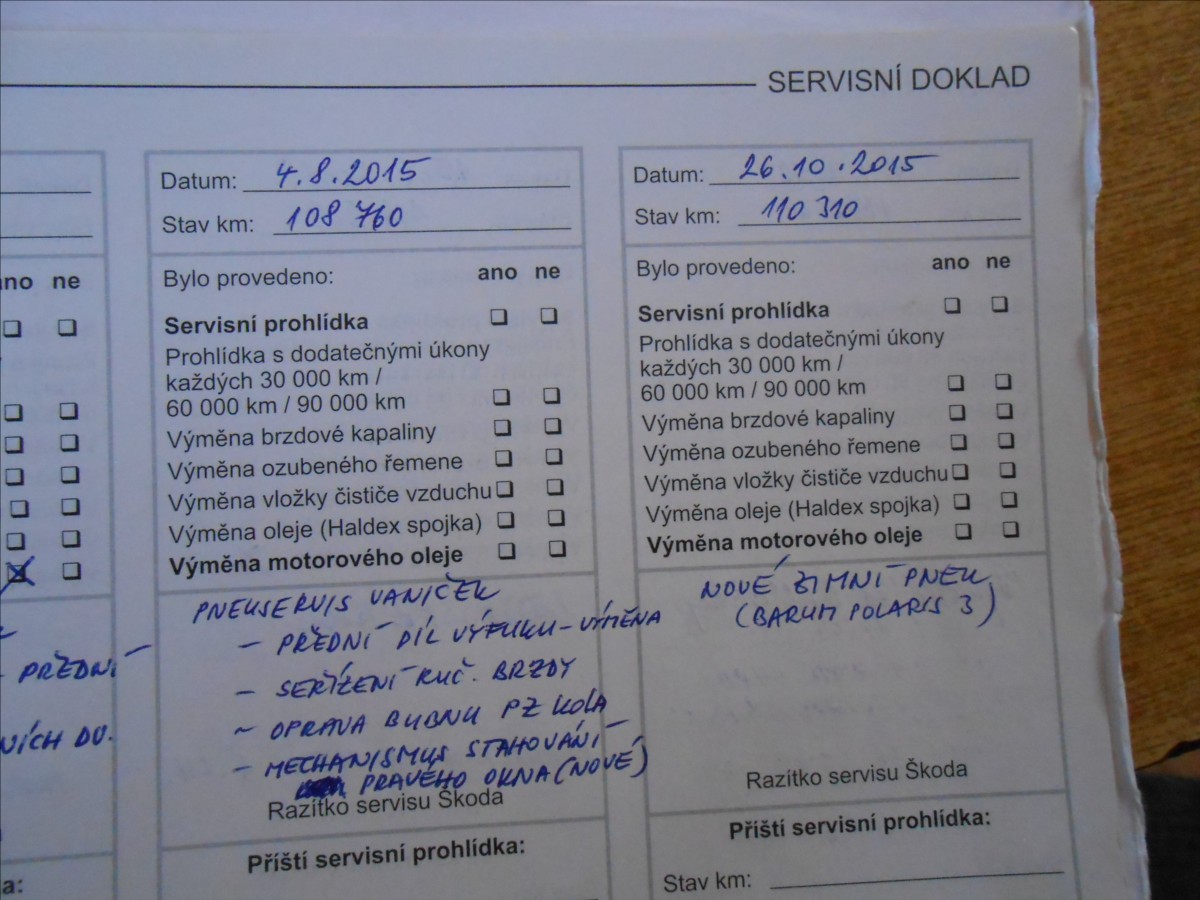 SERVISNÍ DOKLAD
ano ne
PŘEDNÍ
NÍCH DV.
a:
Datum: 4.8.2015
Stav km: 108 760
Bylo provedeno: ano ne
Servisní prohlídka
Prohlídka s dodatečnými úkony
každých 30 000 km /
60 000 km / 90 000 km
Výměna brzdové kapaliny
Výměna ozubeného řemene
Výměna vložky čističe vzduchu
Výměna oleje (Haldex spojka)
Výměna motorového oleje
PNEKSERVIS VANÍČEK
- PŘEDNÍ DÍL VÝFUKU-VÝMĚNA
- SEŘÍZENÍ RUČ. BRZDY
- OPRAVA BUBNU PZ KOLA
- MECHANISMUS STAHOVÁNÍ
PRAVÉHO OKNA (NOVÉ)
Razítko servisu Škoda
Příští servisní prohlídka:
Datum: 26.10.2015
Stav km: 110 310
Bylo provedeno: ano ne
Servisní prohlídka
Prohlídka s dodatečnými úkony
každých 30 000 km /
60 000 km / 90 000 km
Výměna brzdové kapaliny
Výměna ozubeného řemene
Výměna vložky čističe vzduchu
Výměna oleje (Haldex spojka)
Výměna motorového oleje
NOVÉ ZIMNÍ PNEK
(BARUM POLARIS 3)
Razítko servisu Škoda
Příští servisní prohlídka:
Stav km: